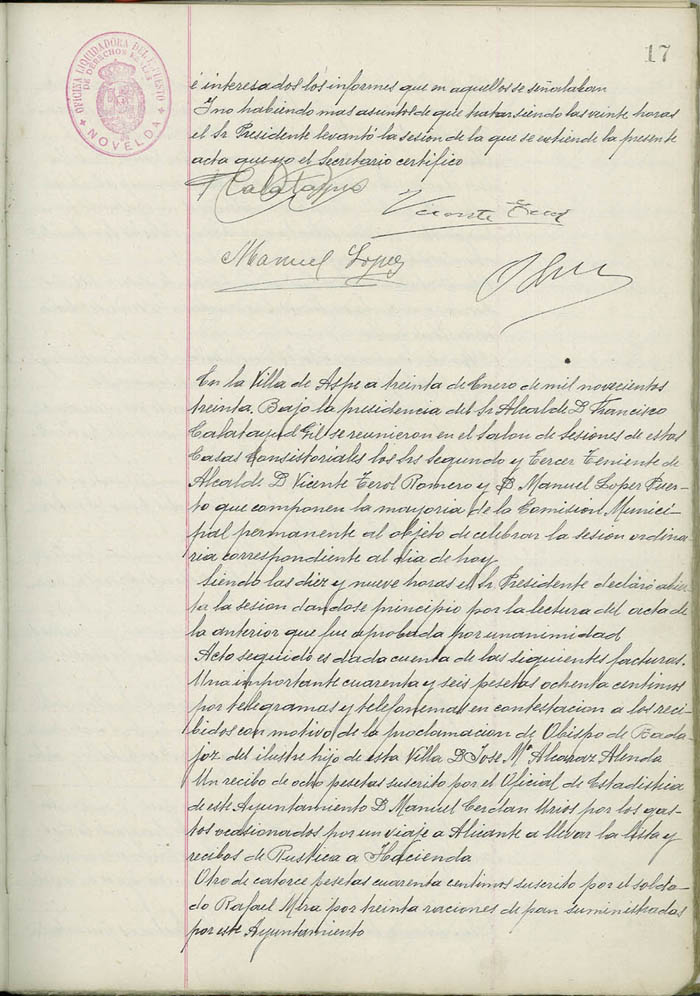 17
OFICINA LIQUIDADORA DEL IMPUESTO
DE DERECHOS REALES
NOVELDA
é interesados los informes que en aquellos se señalaban
Y no habiendo mas asuntos de que tratar siendo las veinte horas
el Sr Presidente levantó la sesion de la que se extiende la presente
acta que yo el Secretario certifico
Calatayud
Vicente Terol
Manuel Lopez
En la Villa de Aspe a treinta de Enero de mil novecientos
treinta. Bajo la presidencia del Sr Alcalde D Francisco
Calatayud Gil se reunieron en el Salon de Sesiones de estas
Casas Consistoriales los Srs Segundo y Tercer Teniente de
Alcalde D Vicente Terol Romero y D Manuel Lopez Puer-
to que componen la mayoria de la Comision Munici-
pal permanente al objeto de celebrar la sesion ordina
ria correspondiente al dia de hoy
Siendo las diez y nueve horas el Sr Presidente declaró abier
ta la sesion dandose principio por la lectura del acta de
la anterior que fue aprobada por unanimidad
Acto seguido es dada cuenta de las siguientes facturas.
Una importante cuarenta y seis pesetas ochenta centimos
por telegramas y telefonemas en contestacion a los reci
bidos con motivo de la proclamacion de Obispo de Bada-
joz del ilustre hijo de esta Villa D Jose Mª Alcaraz Alenda
Un recibo de ocho pesetas suscrito por el Oficial de Estadistica
de este Ayuntamiento D Manuel Cerdan Urios por los gas-
tos ocasionados por un viaje a Alicante a llevar la lista y
recibos de Rustica a Hacienda
Otro de catorce pesetas cuarenta centimos suscrito por el solda-
do Rafael Mira por treinta raciones de pan suministradas
por este Ayuntamiento